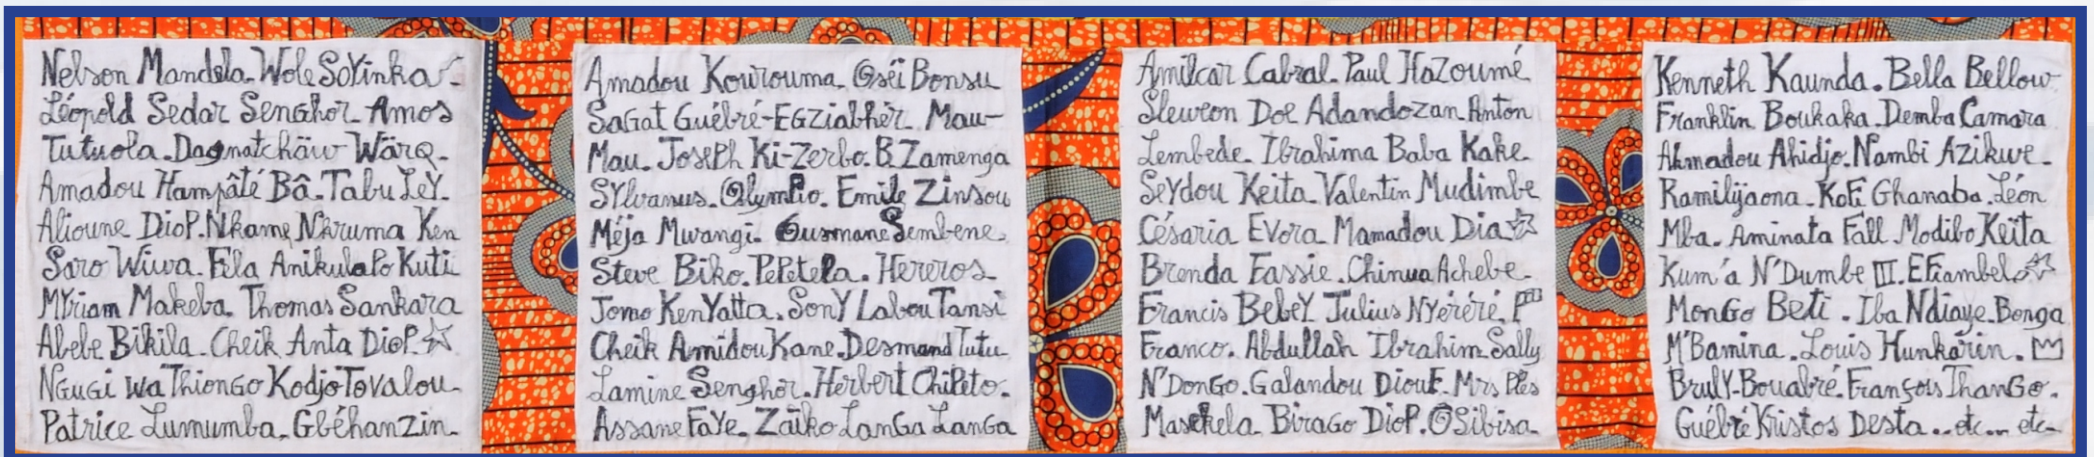 Nelson Mandela. Wole SoYinka
Léopold Sedar SenGhor. Amos
Tutuola. Dagnatchäw Wärq.
Amadou Hampâté Bâ. Tabu LeY.
Alioune DioP. Nkame Nkruma Ken
Saro Wiwa. Fela AnikulaPo Kuti
MYriam Makeba. Thomas Sankara
Abebe Bikila. Cheik Anta DioP.
NGuGi wa ThionGo KodjoTovalou.
Patrice Lumumba. Gbéhanzin.
Amadou Kourouma. Oséï Bonsu
SaGat Guébré-EGziabhér. Mau-
Mau. JosePh Ki-Zerbo. B. Zamenga
SYlvanus. OlymPio. Emile Zinsou
Méja Mwangi. Ousmane Sembene.
Steve Biko. PePetela. Hereros.
Jomo KenYatta. SonY Labou Tansi
Cheik Amidou Kane. Desmond Tutu.
Lamine Senghor. Herbert ChiPeto.
Assane FaYe. Zaïko LanGa LanGa
Amilcar Cabral. Paul HaZoumé
Sleweon Doe Adandozan. Anton
Lembede. Ibrahima Baba Kake.
SeYdou Keita. Valentin Mudimbe
Césaria Evora. Mamadou Dia
Brenda Fassie. Chinua Achebe.
Francis BebeY. Julius NYéréré.
Franco. Abdullah Ibrahim. Sally
N'DonGo. Galandou DiouF. Mrs Ples
Masekela. BiraGo DioP. OSibisa.
Kenneth Kaunda. Bella Bellow.
Franklin Boukaka. Demba Camara
Ahmadou Ahidjo. Nambi Azikwe.
Ramilijaona. KoFi Ghanaba. Léon
Mba. Aminata Fall. Modibo Keïta
Kum'a N'Dumbe III. EFiambelo
MonGo Beti. Iba Ndiaye. Bonga
M'Bamina. Louis Hunkarin.
BrulY-Bouabré. François ThanGo.
Guébré Kristos Desta... etc... etc-